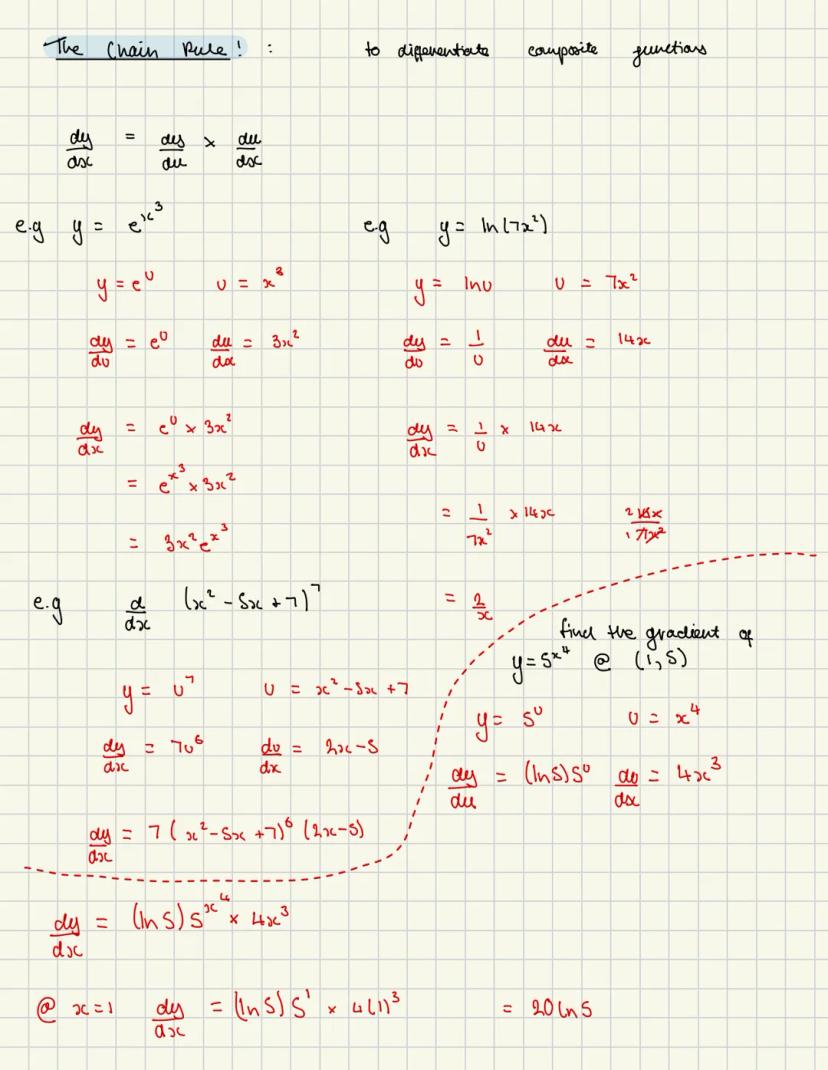 The Chain Rule! : to differentiate composite functions
dy/dx = dy/du × du/dx
e.g y = e^x^3
y = e^u u = x^3
dy/du = e^u du/dx = 3x^2
dy/dx = e^u × 3x^2
= e^x^3 × 3x^2
= 3x^2 e^x^3
e.g y = ln(7x^2)
y = lnu u = 7x^2
dy/du = 1/u du/dx = 14x
dy/dx = 1/u × 14x
= 1/7x^2 × 14x 2 14x / 1 7x^2
= 2/x
e.g d/dx (x^2 - 5x + 7)^7
y = u^7 u = x^2 - 5x + 7
dy/dx = 7u^6 du/dx = 2x - 5
dy/dx = 7(x^2 - 5x + 7)^6 (2x - 5)
find the gradient of
y = 5^x^4 @ (1, 5)
y = 5^u u = x^4
dy/du = (ln5)5^u du/dx = 4x^3
dy/dx = (ln5)5^x^4 × 4x^3
@ x = 1 dy/dx = (ln5)5^1 × 4(1)^3 = 20ln5